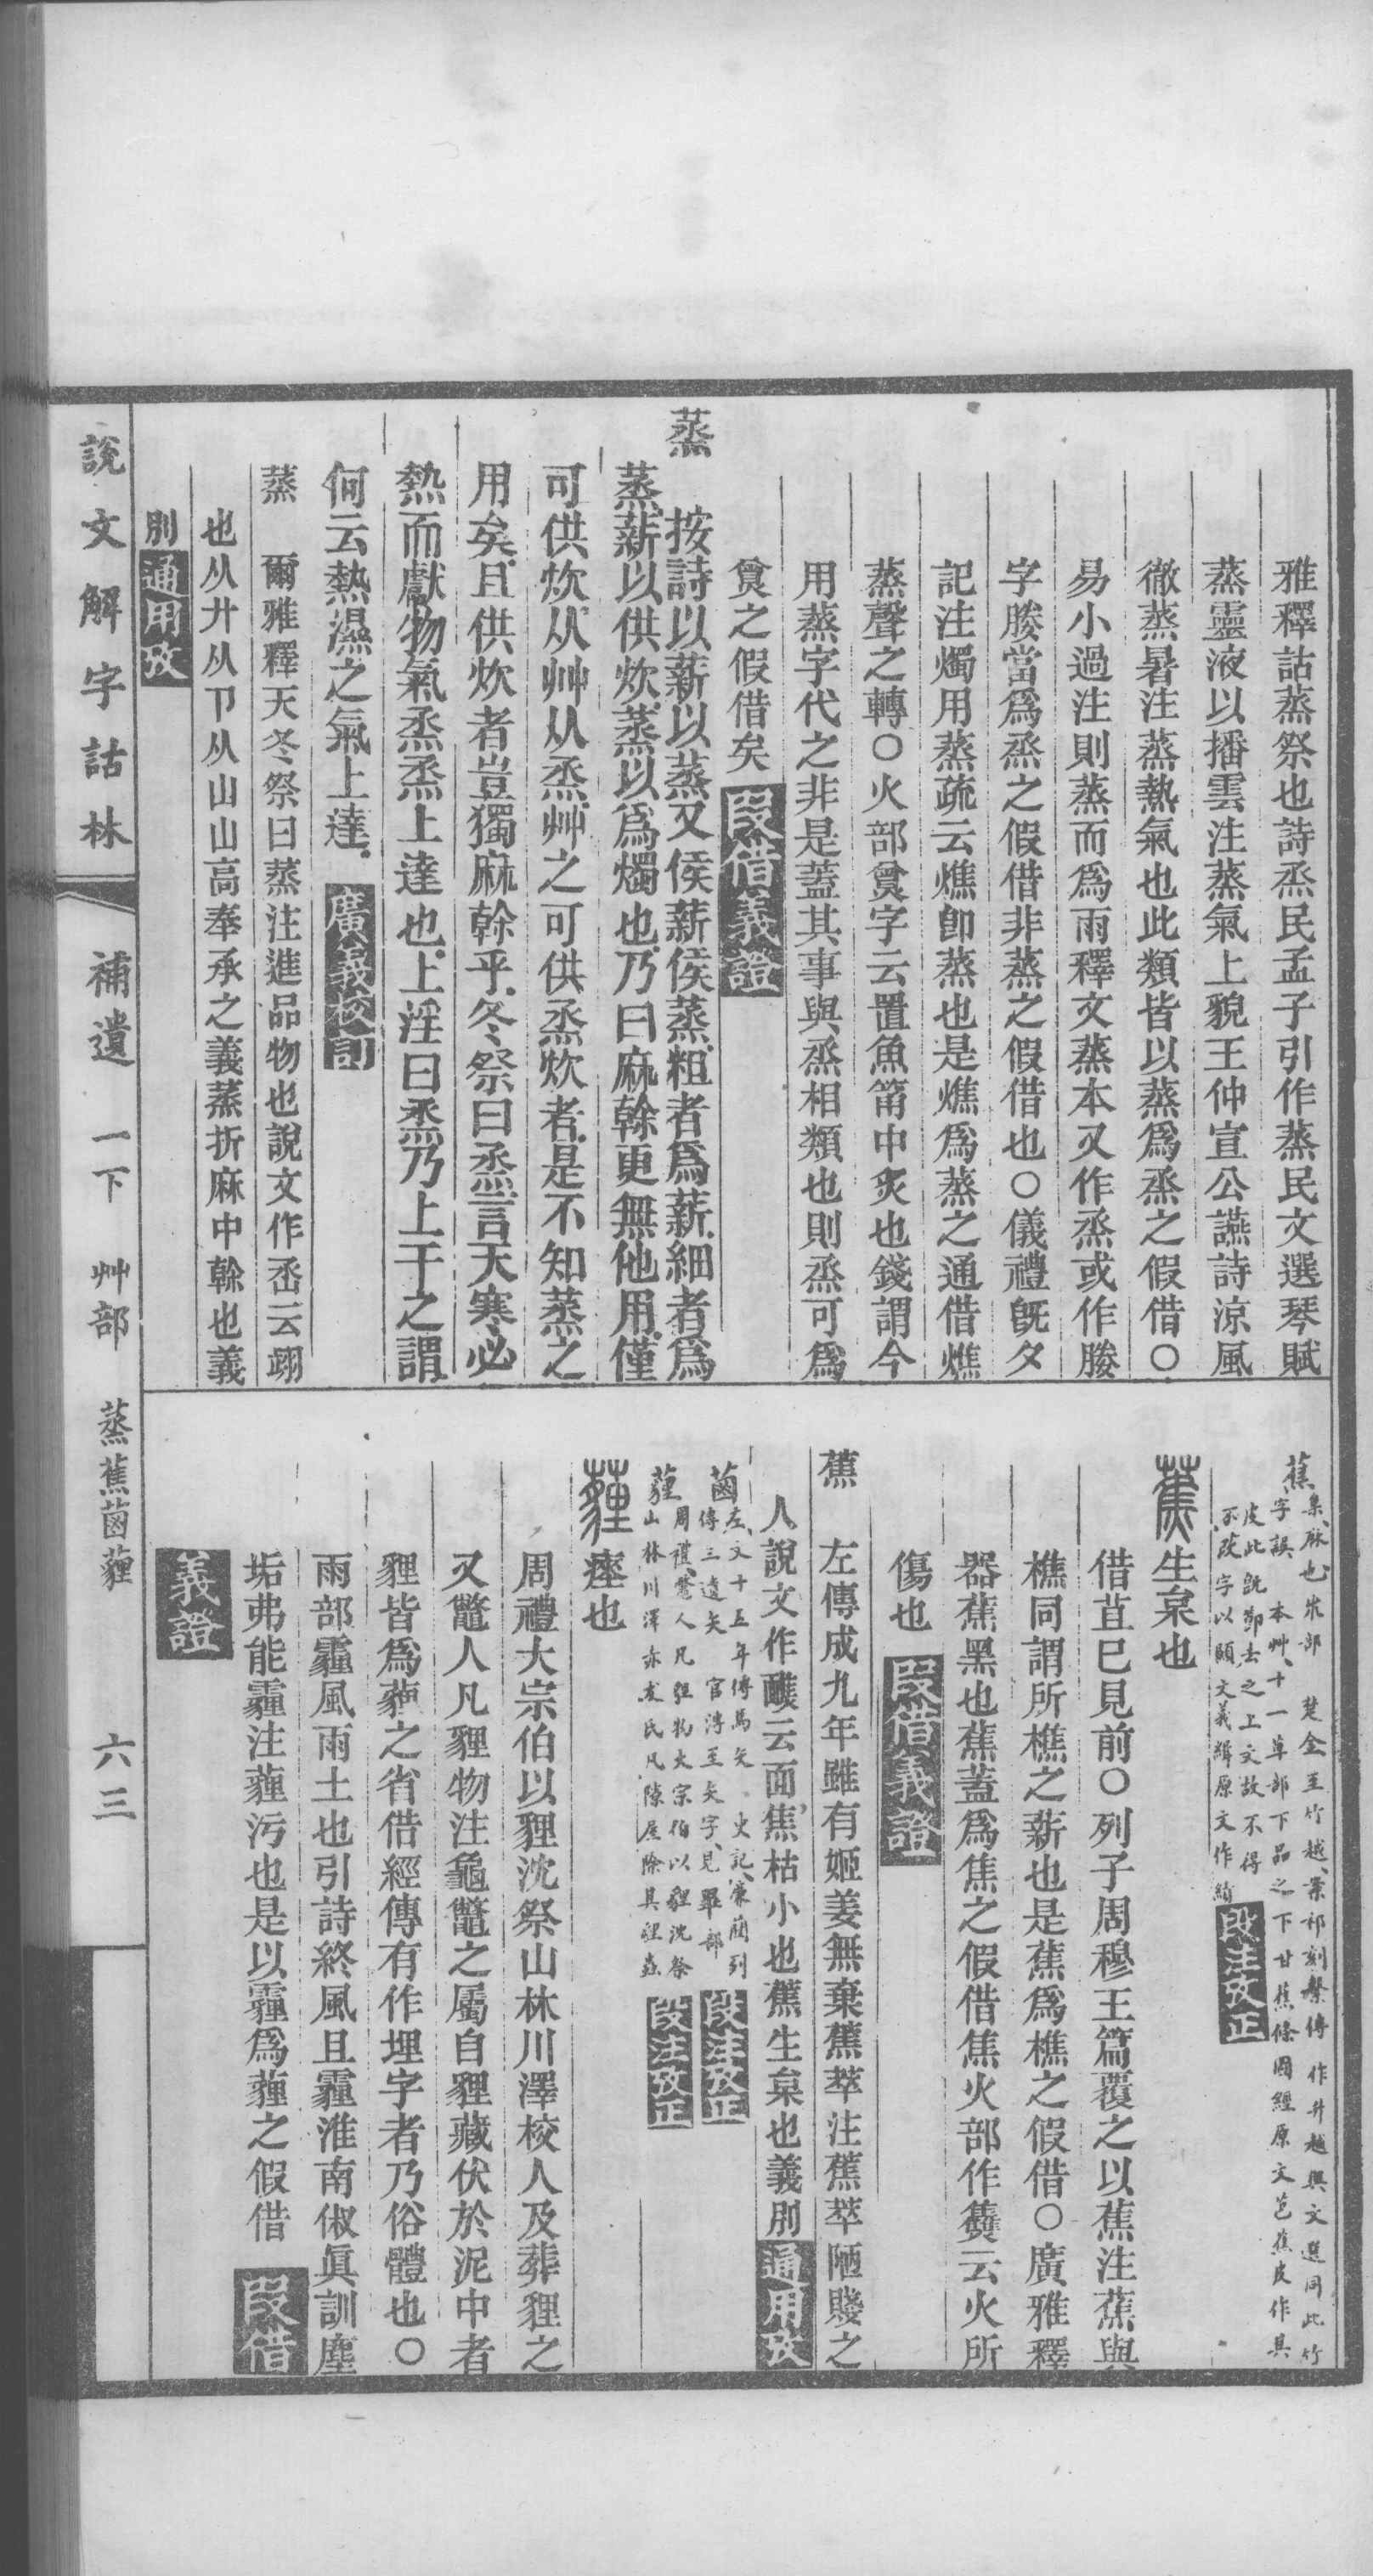 雅釋詁蒸祭也詩烝民孟子引作蒸民文選琴賦
蒸靈液以播雲注蒸氣上貌王仲宣公讌詩涼風
徹蒸暑注蒸熱氣也此類皆以蒸爲烝之假借〇
易小過注則蒸而爲雨釋文蒸本又作烝或作胗
字胗當爲烝之假借非蒸之假借也〇儀禮旣夕
記注燭用蒸疏云燋卽蒸也是燋爲蒸之通借燋
蒸聲之轉〇火部䰞字云置魚筩中炙也錢謂今
用蒸字代之非是蓋其事與烝相類也則烝可爲
䰞之假借矣 段借義證
蒸 按詩以薪以蒸又侯薪侯蒸粗者爲薪細者爲
蒸薪以供炊蒸以爲燭也乃曰麻榦更無他用僅
可供炊从艸从烝艸之可供烝炊者是不知蒸之
用矣且供炊者豈獨麻榦乎冬祭曰烝言天寒必
熱而獻物氣烝烝上達也上淫曰烝乃上干之謂
何云熱濕之氣上達 廣義校訂
蒸 爾雅釋天冬祭曰蒸注進品物也說文作丞云翊
也从廾从卪从山山高奉承之義蒸折麻中榦也義
別 通用攷
蕉 字誤 本艸十一草部下品之下甘蕉條圖經原文芭蕉皮作其
皮此旣鄉去之上文故不得
不改字以順文義緝原文作 段注攷正
蕉 生枲也
借苴巳見前〇列子周穆王篇覆之以蕉注蕉與
樵同謂所樵之薪也是蕉爲樵之假借〇廣雅釋
器蕉黑也蕉蓋爲焦之假借焦火部作㸈云火所
傷也 段借義證
蕉 左傳成九年雖有姬姜無棄蕉萃注蕉萃陋賤之
人說文作醮云面焦枯小也蕉生枲也義別 通用攷
䓝 左文十五年傳馬矢 史記廉藺列
傳三遺矢 官溥至矢字見𠦒部 段注攷正
薶 周禮鼈人凡貍物大宗伯以貍沈祭
山林川澤赤犮氏凡隙屋除其貍蟲 段注攷正
薶 瘞也
周禮大宗伯以貍沈祭山林川澤校人及葬貍之
又鼈人凡貍物注龜鼈之屬自貍藏伏於泥中者
貍皆爲薶之省借經傳有作埋字者乃俗體也〇
雨部霾風雨土也引詩終風且霾淮南俶眞訓塵
垢弗能霾注薶污也是以霾爲薶之假借 段借
義證
說文解字詁林 補遺 一下 艸部 蒸蕉䓝薶 六三